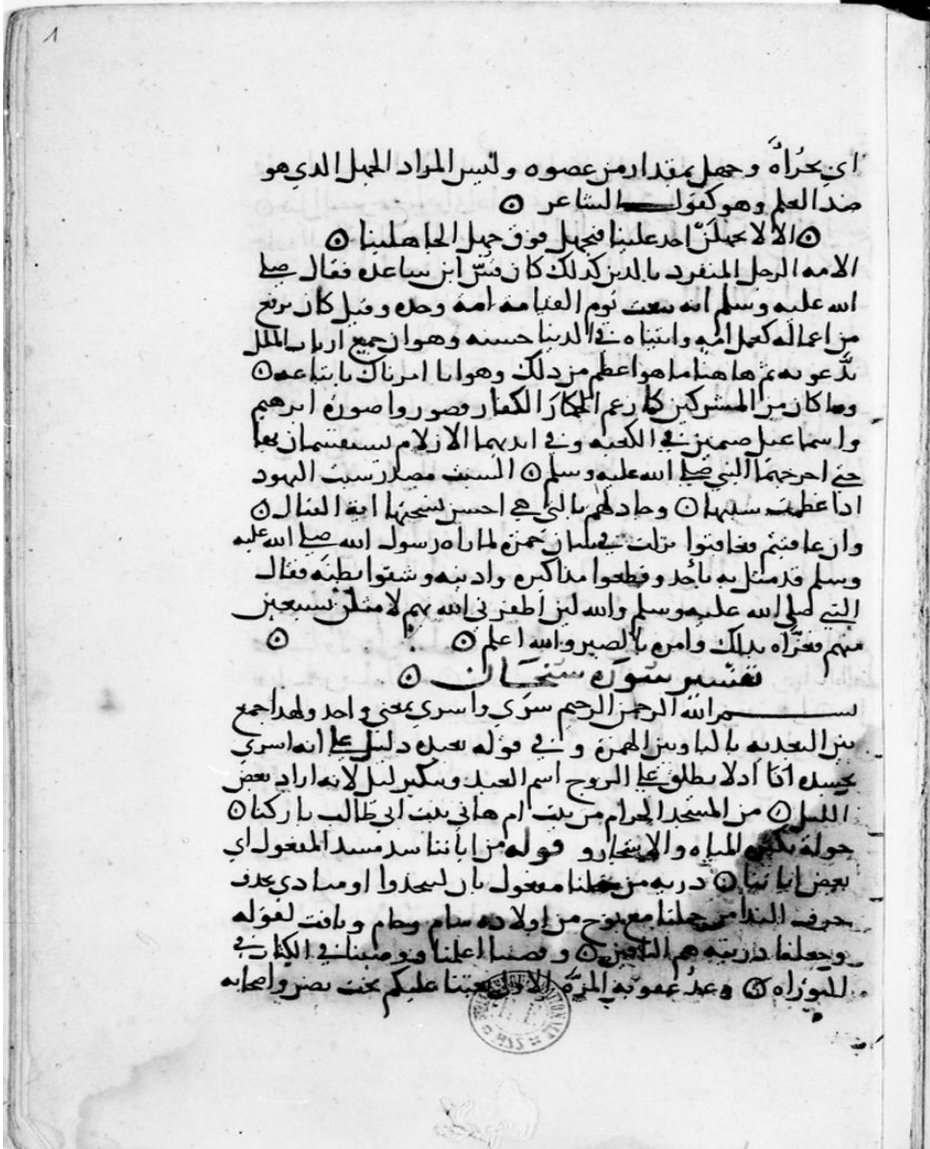 اي بجراة وجهل بمقدار من عصوه وليس المراد الجهل الذي هو
ضد العلم وهو كقول الشاعر
الا لا يجهلن احد علينا فنجهل فوق جهل الجاهلينا
الامة الرجل المنفرد بالدين كذلك كان قس ابن ساعده فقال صلى
الله عليه وسلم انه يبعث يوم القيامة امة وحده وقيل كان يرتفع
من اعماله كعمل امة واتيناه في الدنيا حسنة وهو ان جميع ارباب الملل
تدعو به ثم هاهنا ما هو اعظم من ذلك وهو انا امرناك باتباعه
وما كان من المشركين كما زعم الكفار فصوروا صورة ابرهيم
واسماعيل صنمين في الكعبة وفي ايديهما الازلام يستقسمان بها
حتى اخرجهما النبي صلى الله عليه وسلم السبت مصدر سبت اليهود
اذا عظمت سبتها وجادلهم بالتي هي احسن نسختها اية القتال
وان عاقبتم فعاقبوا نزلت في شان حمزة لما راه رسول الله صلى الله عليه
وسلم قد مثل به باحد وقطعوا مذاكيره واذنيه وشقوا بطنه فقال
النبي صلى الله عليه وسلم والله لين اظفرني الله بهم لامثلن بسبعين
منهم فعزاه بذلك وامره بالصبر والله اعلم
تفسير سورة سبحان
بسم الله الرحمن الرحيم سري واسري بمعني واحد ولهذا جمع
بين التعدية بالبا وبين الهمزة وفي قوله بعبده دليل على انه اسري
بجسده اذ لا يطلق على الروح اسم العبد وتنكير ليل لانه اراد بعض
الليل من المسجد الحرام من بيت ام هاني بنت ابي طالب باركنا
حوله بكثرة المياه والاشجار و قوله من اياتنا سد مسد المفعول اي
بعض اياتنا ذرية من حملنا مفعول بان لا تتخذوا او منادي بحذف
حرف الندا من حملنا مع نوح من اولاده سام وحام ويافت لقوله
وجعلنا ذريته هم الباقين وقضينا اعلمنا في الكتاب في
التوراة وعد عقوبة المرة الاولى بعثنا عليكم بخت نصر واصحابه